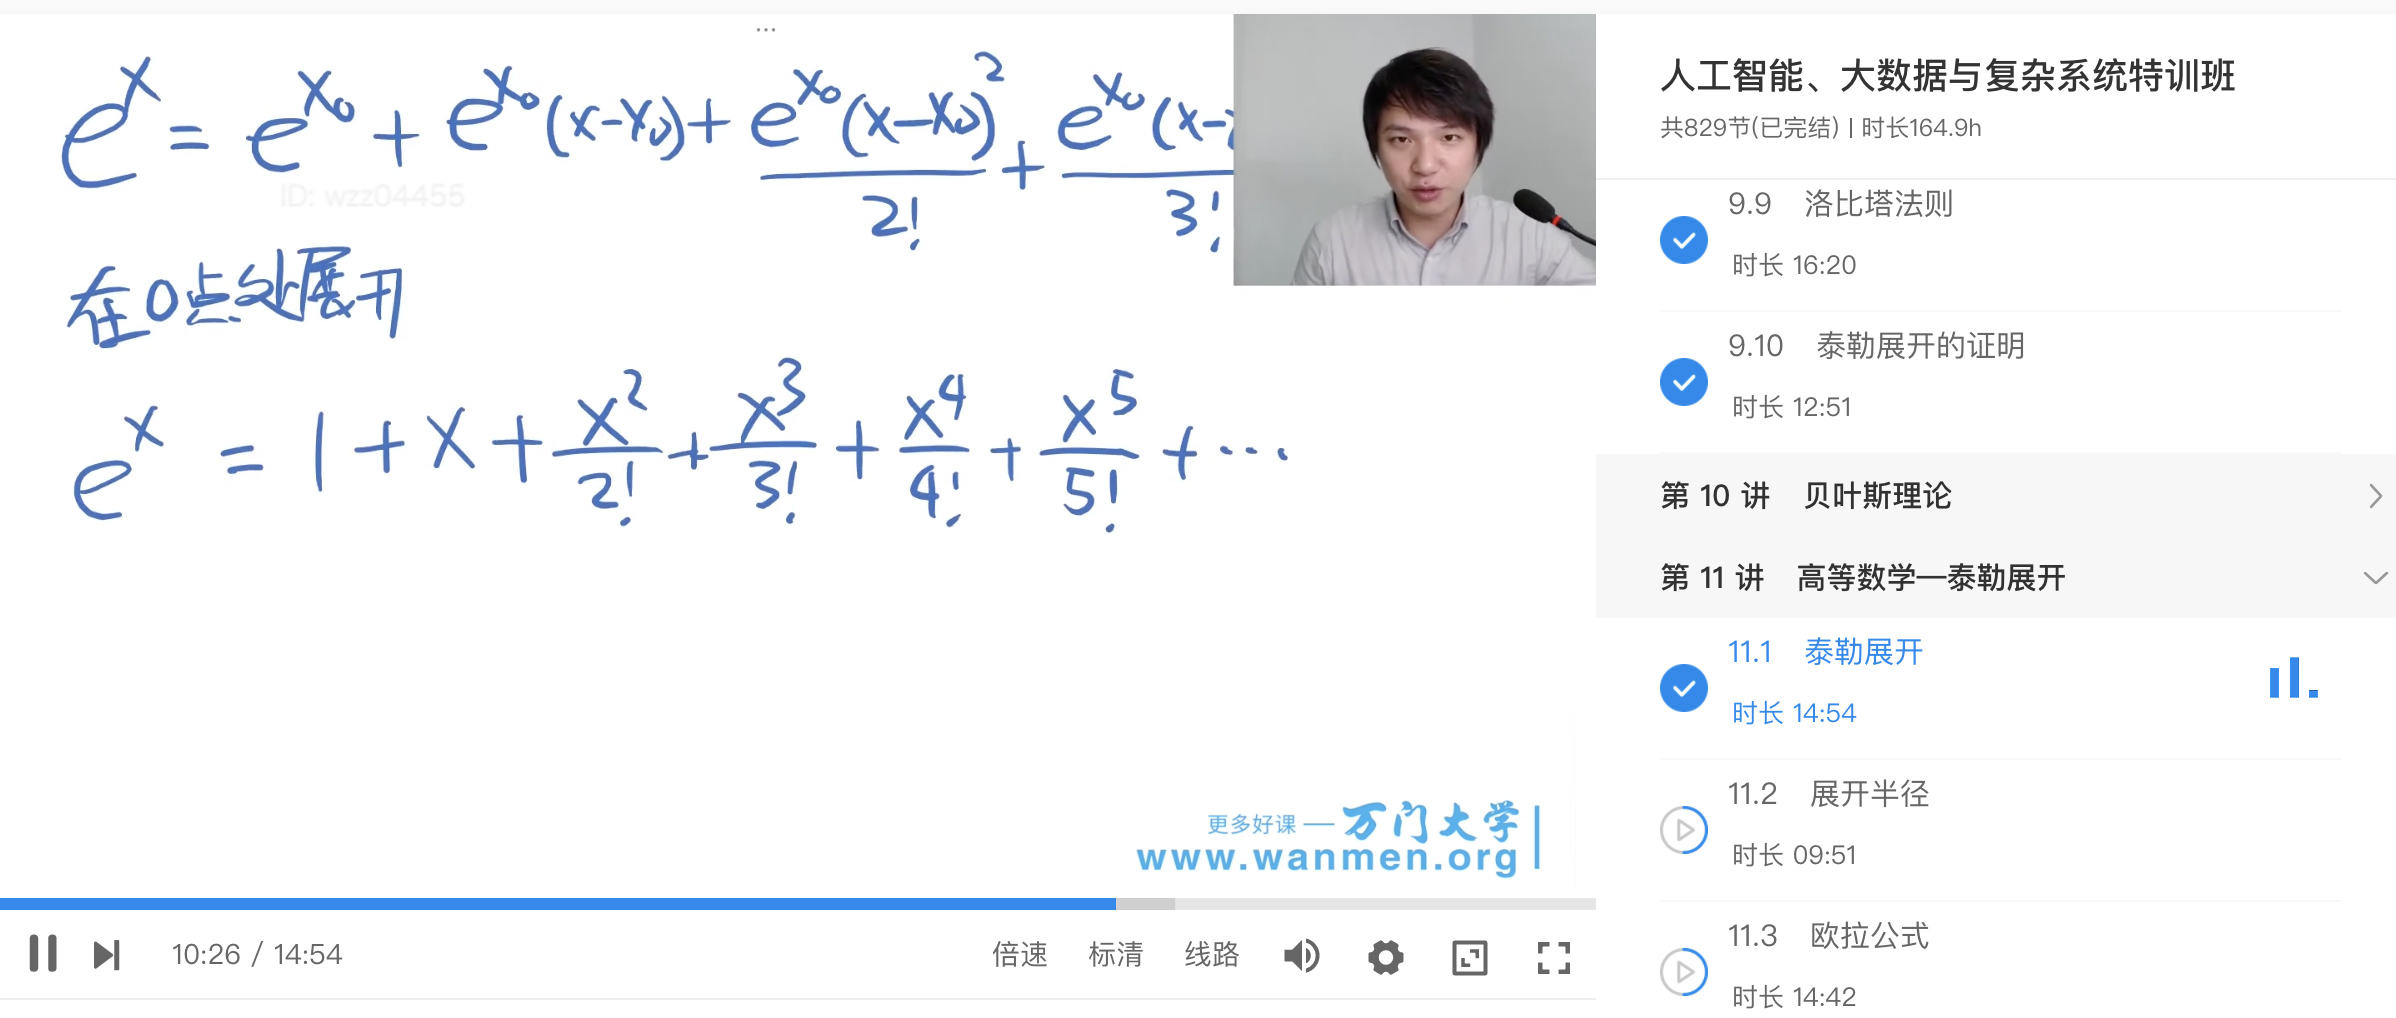 ...
e^x = e^{x₀} + e^{x₀}(x-x₀) + e^{x₀}(x-x₀)²/2! + e^{x₀}(x-/3!
ID: wzz04455
在0点处展开
e^x = 1 + x + x²/2! + x³/3! + x⁴/4! + x⁵/5! + ...
更多好课 — 万门大学
www.wanmen.org
10:26 / 14:54
倍速 标清 线路
人工智能、大数据与复杂系统特训班
共829节(已完结) | 时长164.9h
9.9 洛比塔法则
时长 16:20
9.10 泰勒展开的证明
时长 12:51
第 10 讲 贝叶斯理论
第 11 讲 高等数学—泰勒展开
11.1 泰勒展开
时长 14:54
11.2 展开半径
时长 09:51
11.3 欧拉公式
时长 14:42